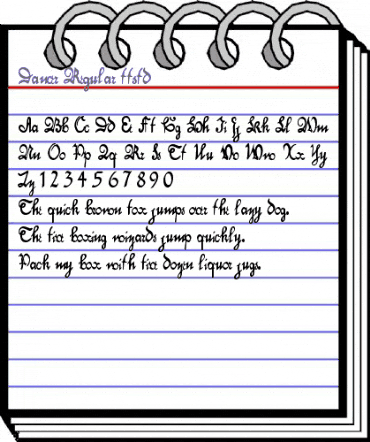 Dancr Regular ttstd
Aa Bb Cc Dd Ee Ff Gg Hh Ii Jj Kk Ll Mm
Nn Oo Pp Qq Rr Ss Tt Uu Vv Ww Xx Yy
Zz 1 2 3 4 5 6 7 8 9 0
The quick brown fox jumps over the lazy dog.
The five boxing wizards jump quickly.
Pack my box with five dozen liquor jugs.